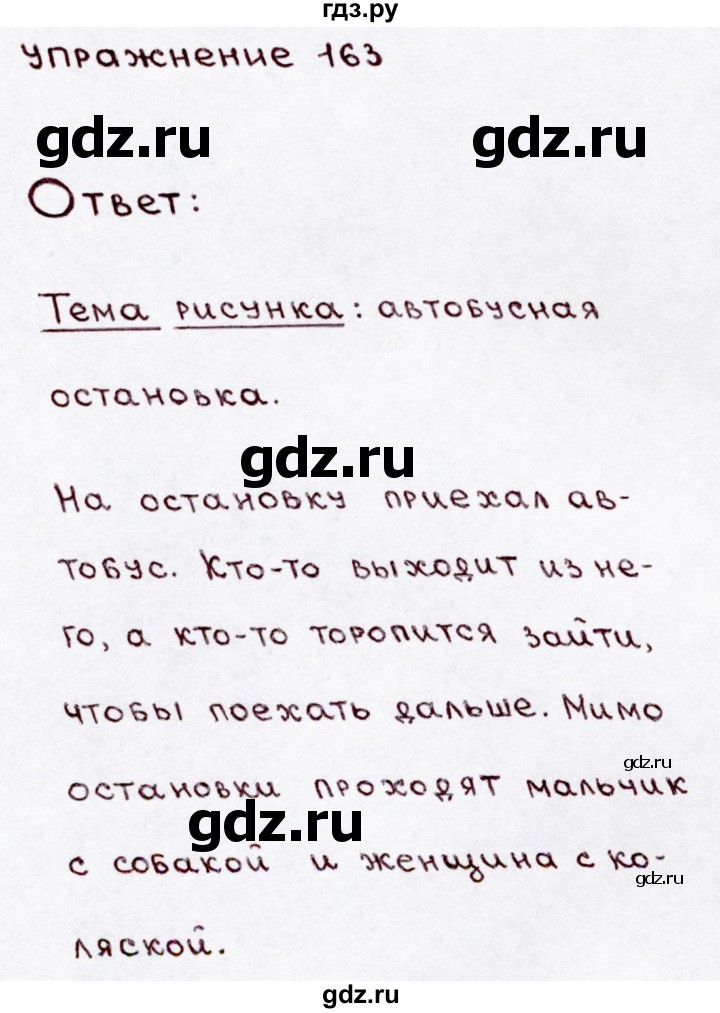 гдз.ру
Упражнение 163
gdz.ru gdz.ru
Ответ:
Тема рисунка: автобусная
остановка.
gdz.ru
На остановку приехал ав-
тобус. Кто-то выходит из не-
го, а кто-то торопится зайти,
чтобы поехать дальше. Мимо
gdz.ru
остановки проходят мальчик
gdz.ru
с собакой и женщина с ко-
gdz.ru
ляской.
gdz.ru